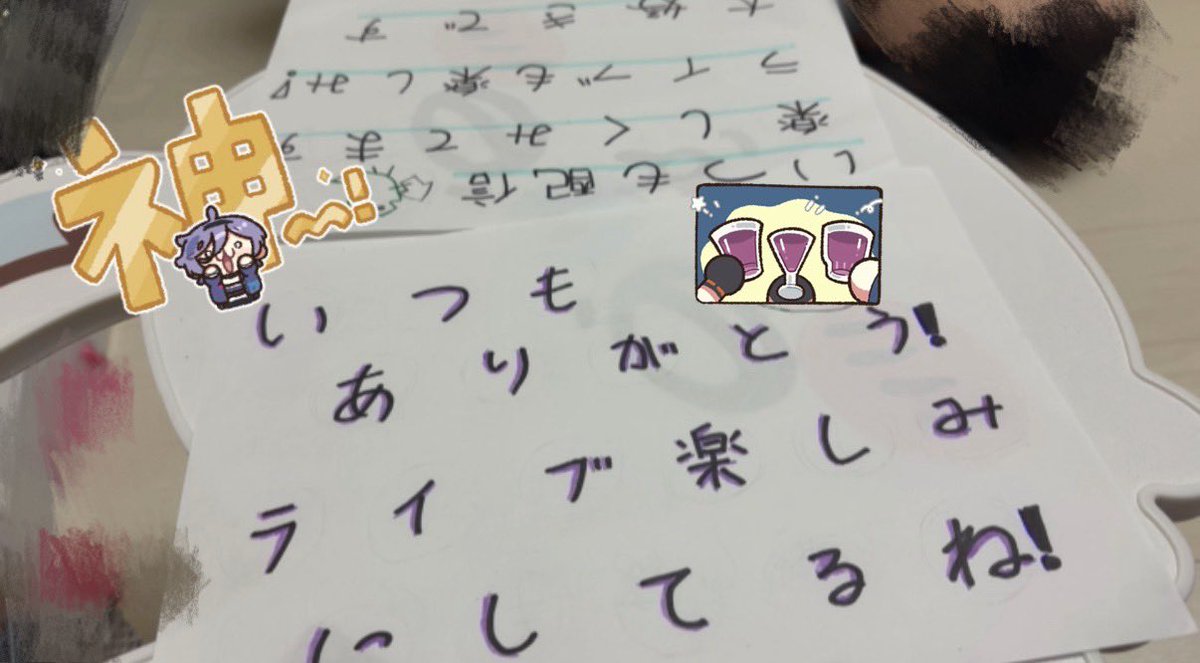 神〜!
いつも配信
楽しくみてます
ライブも楽しみ!
大好きです
いつも
ありがとう!
ライブ楽しみ
にしてるね!